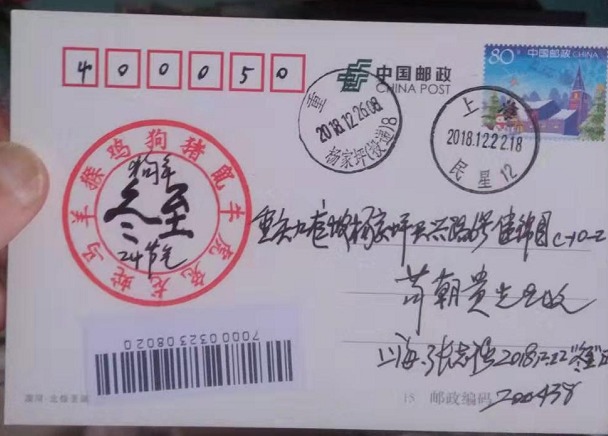 400050
中国邮政
CHINA POST
80分
中国邮政 CHINA
重
2018.12.26.08
杨家坪(投递)8
上海
2018.12.22.18
民星12
鼠牛虎兔龙蛇马羊猴鸡狗猪
狗年
冬至
24节气
重庆九龙坡杨家坪兴胜路 健锦园C-10-2
朝贵先生收
上海 张志强 2018.12.22"冬至"
邮政编码 200438
70000323080020